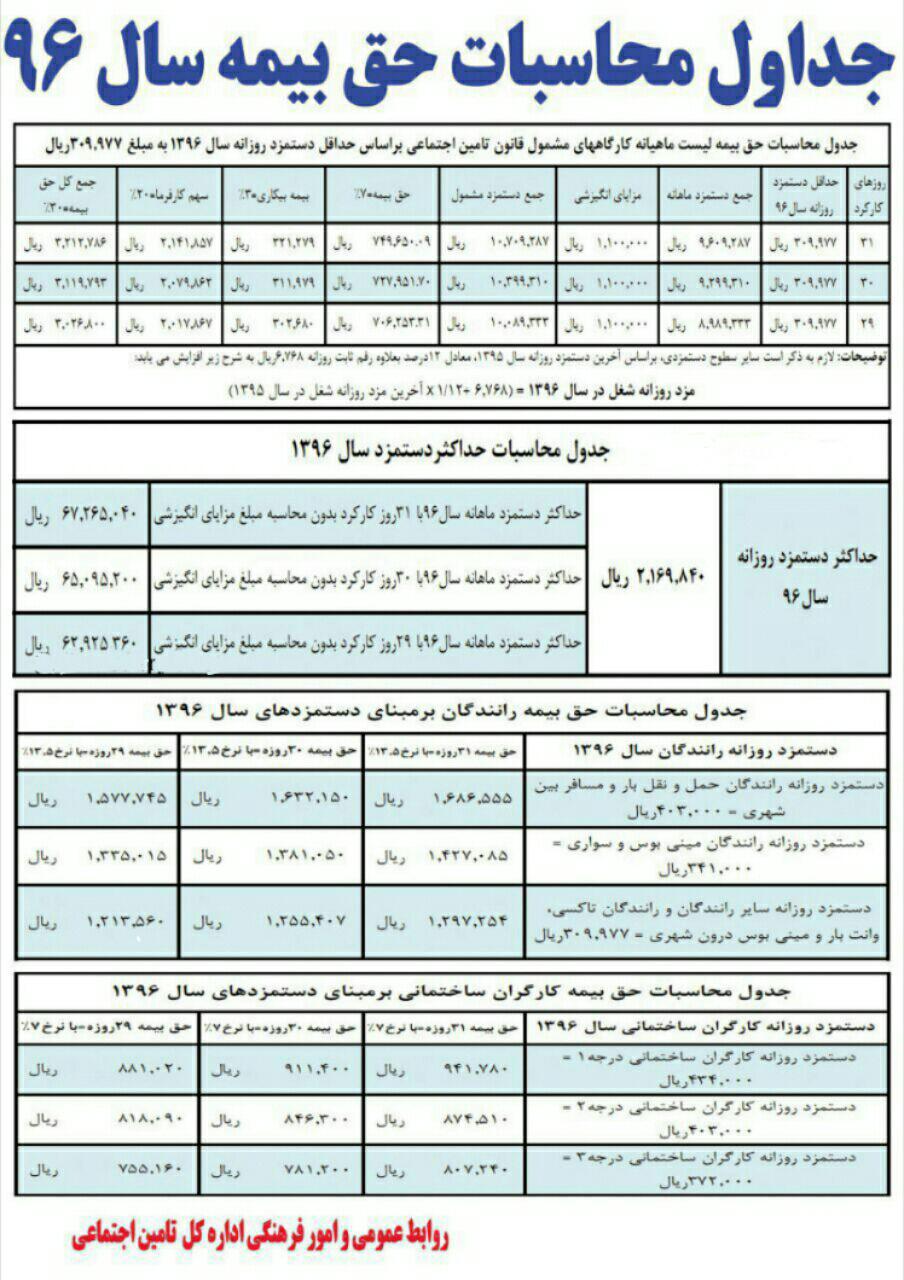 جداول محاسبات حق بیمه سال ۹۶
جدول محاسبات حق بیمه لیست ماهیانه کارگاههای مشمول قانون تامین اجتماعی براساس حداقل دستمزد روزانه سال ۱۳۹۶ به مبلغ ۳۰۹,۹۷۷ریال
روزهای کارکرد حداقل دستمزد روزانه سال۹۶ جمع دستمزد ماهانه مزایای انگیزشی جمع دستمزد مشمول حق بیمه=۷٪ بیمه بیکاری=۳٪ سهم کارفرما=۲۰٪ جمع کل حق بیمه=۳۰٪
۳۱ ۳۰۹,۹۷۷ ریال ۹,۶۰۹,۲۸۷ ریال ۱,۱۰۰,۰۰۰ ریال ۱۰,۷۰۹,۲۸۷ ریال ۷۴۹,۶۵۰.۰۹ ریال ۳۲۱,۲۷۹ ریال ۲,۱۴۱,۸۵۷ ریال ۳,۲۱۲,۷۸۶ ریال
۳۰ ۳۰۹,۹۷۷ ریال ۹,۲۹۹,۳۱۰ ریال ۱,۱۰۰,۰۰۰ ریال ۱۰,۳۹۹,۳۱۰ ریال ۷۲۷,۹۵۱.۷۰ ریال ۳۱۱,۹۷۹ ریال ۲,۰۷۹,۸۶۲ ریال ۳,۱۱۹,۷۹۳ ریال
۲۹ ۳۰۹,۹۷۷ ریال ۸,۹۸۹,۳۳۳ ریال ۱,۱۰۰,۰۰۰ ریال ۱۰,۰۸۹,۳۳۳ ریال ۷۰۶,۲۵۳.۳۱ ریال ۳۰۲,۶۸۰ ریال ۲,۰۱۷,۸۶۷ ریال ۳,۰۲۶,۸۰۰ ریال
توضیحات: لازم به ذکر است سایر سطوح دستمزدی، براساس آخرین دستمزد روزانه سال ۱۳۹۵، معادل ۱۲درصد بعلاوه رقم ثابت روزانه ۶,۷۶۸ریال به شرح زیر افزایش می یابد:
مزد روزانه شغل در سال ۱۳۹۶ = (۶,۷۶۸ +۱/۱۲ X آخرین مزد روزانه شغل در سال ۱۳۹۵)
جدول محاسبات حداکثردستمزد سال ۱۳۹۶
حداکثر دستمزد روزانه سال۹۶ ۲,۱۶۹,۸۴۰ ریال
حداکثر دستمزد ماهانه سال۹۶با ۳۱روز کارکرد بدون محاسبه مبلغ مزایای انگیزشی ۶۷,۲۶۵,۰۴۰ ریال
حداکثر دستمزد ماهانه سال۹۶با ۳۰روز کارکرد بدون محاسبه مبلغ مزایای انگیزشی ۶۵,۰۹۵,۲۰۰ ریال
حداکثر دستمزد ماهانه سال۹۶با ۲۹روز کارکرد بدون محاسبه مبلغ مزایای انگیزشی ۶۲,۹۲۵ ۳۶۰ ریال
جدول محاسبات حق بیمه رانندگان برمبنای دستمزدهای سال ۱۳۹۶
دستمزد روزانه رانندگان سال ۱۳۹۶ حق بیمه ۳۱روزه=با نرخ۱۳.۵٪ حق بیمه ۳۰روزه=با نرخ۱۳.۵٪ حق بیمه ۲۹روزه=با نرخ۱۳.۵٪
دستمزد روزانه رانندگان حمل و نقل بار و مسافر بین شهری = ۴۰۳,۰۰۰ریال ۱,۶۸۶,۵۵۵ ریال ۱,۶۳۲,۱۵۰ ریال ۱,۵۷۷,۷۴۵ ریال
دستمزد روزانه رانندگان مینی بوس و سواری = ۳۴۱,۰۰۰ریال ۱,۴۲۷,۰۸۵ ریال ۱,۳۸۱,۰۵۰ ریال ۱,۳۳۵,۰۱۵ ریال
دستمزد روزانه سایر رانندگان و رانندگان تاکسی، وانت بار و مینی بوس درون شهری = ۳۰۹,۹۷۷ریال ۱,۲۹۷,۲۵۴ ریال ۱,۲۵۵,۴۰۷ ریال ۱,۲۱۳,۵۶۰ ریال
جدول محاسبات حق بیمه کارگران ساختمانی برمبنای دستمزدهای سال ۱۳۹۶
دستمزد روزانه کارگران ساختمانی سال ۱۳۹۶ حق بیمه ۳۱روزه=با نرخ۷٪ حق بیمه ۳۰روزه=با نرخ۷٪ حق بیمه ۲۹روزه=با نرخ۷٪
دستمزد روزانه کارگران ساختمانی درجه۱ = ۴۳۴,۰۰۰ریال ۹۴۱,۷۸۰ ریال ۹۱۱,۴۰۰ ریال ۸۸۱,۰۲۰ ریال
دستمزد روزانه کارگران ساختمانی درجه۲ = ۴۰۳,۰۰۰ریال ۸۷۴,۵۱۰ ریال ۸۴۶,۳۰۰ ریال ۸۱۸,۰۹۰ ریال
دستمزد روزانه کارگران ساختمانی درجه۳ = ۳۷۲,۰۰۰ریال ۸۰۷,۲۴۰ ریال ۷۸۱,۲۰۰ ریال ۷۵۵,۱۶۰ ریال
روابط عمومی و امور فرهنگی اداره کل تامین اجتماعی